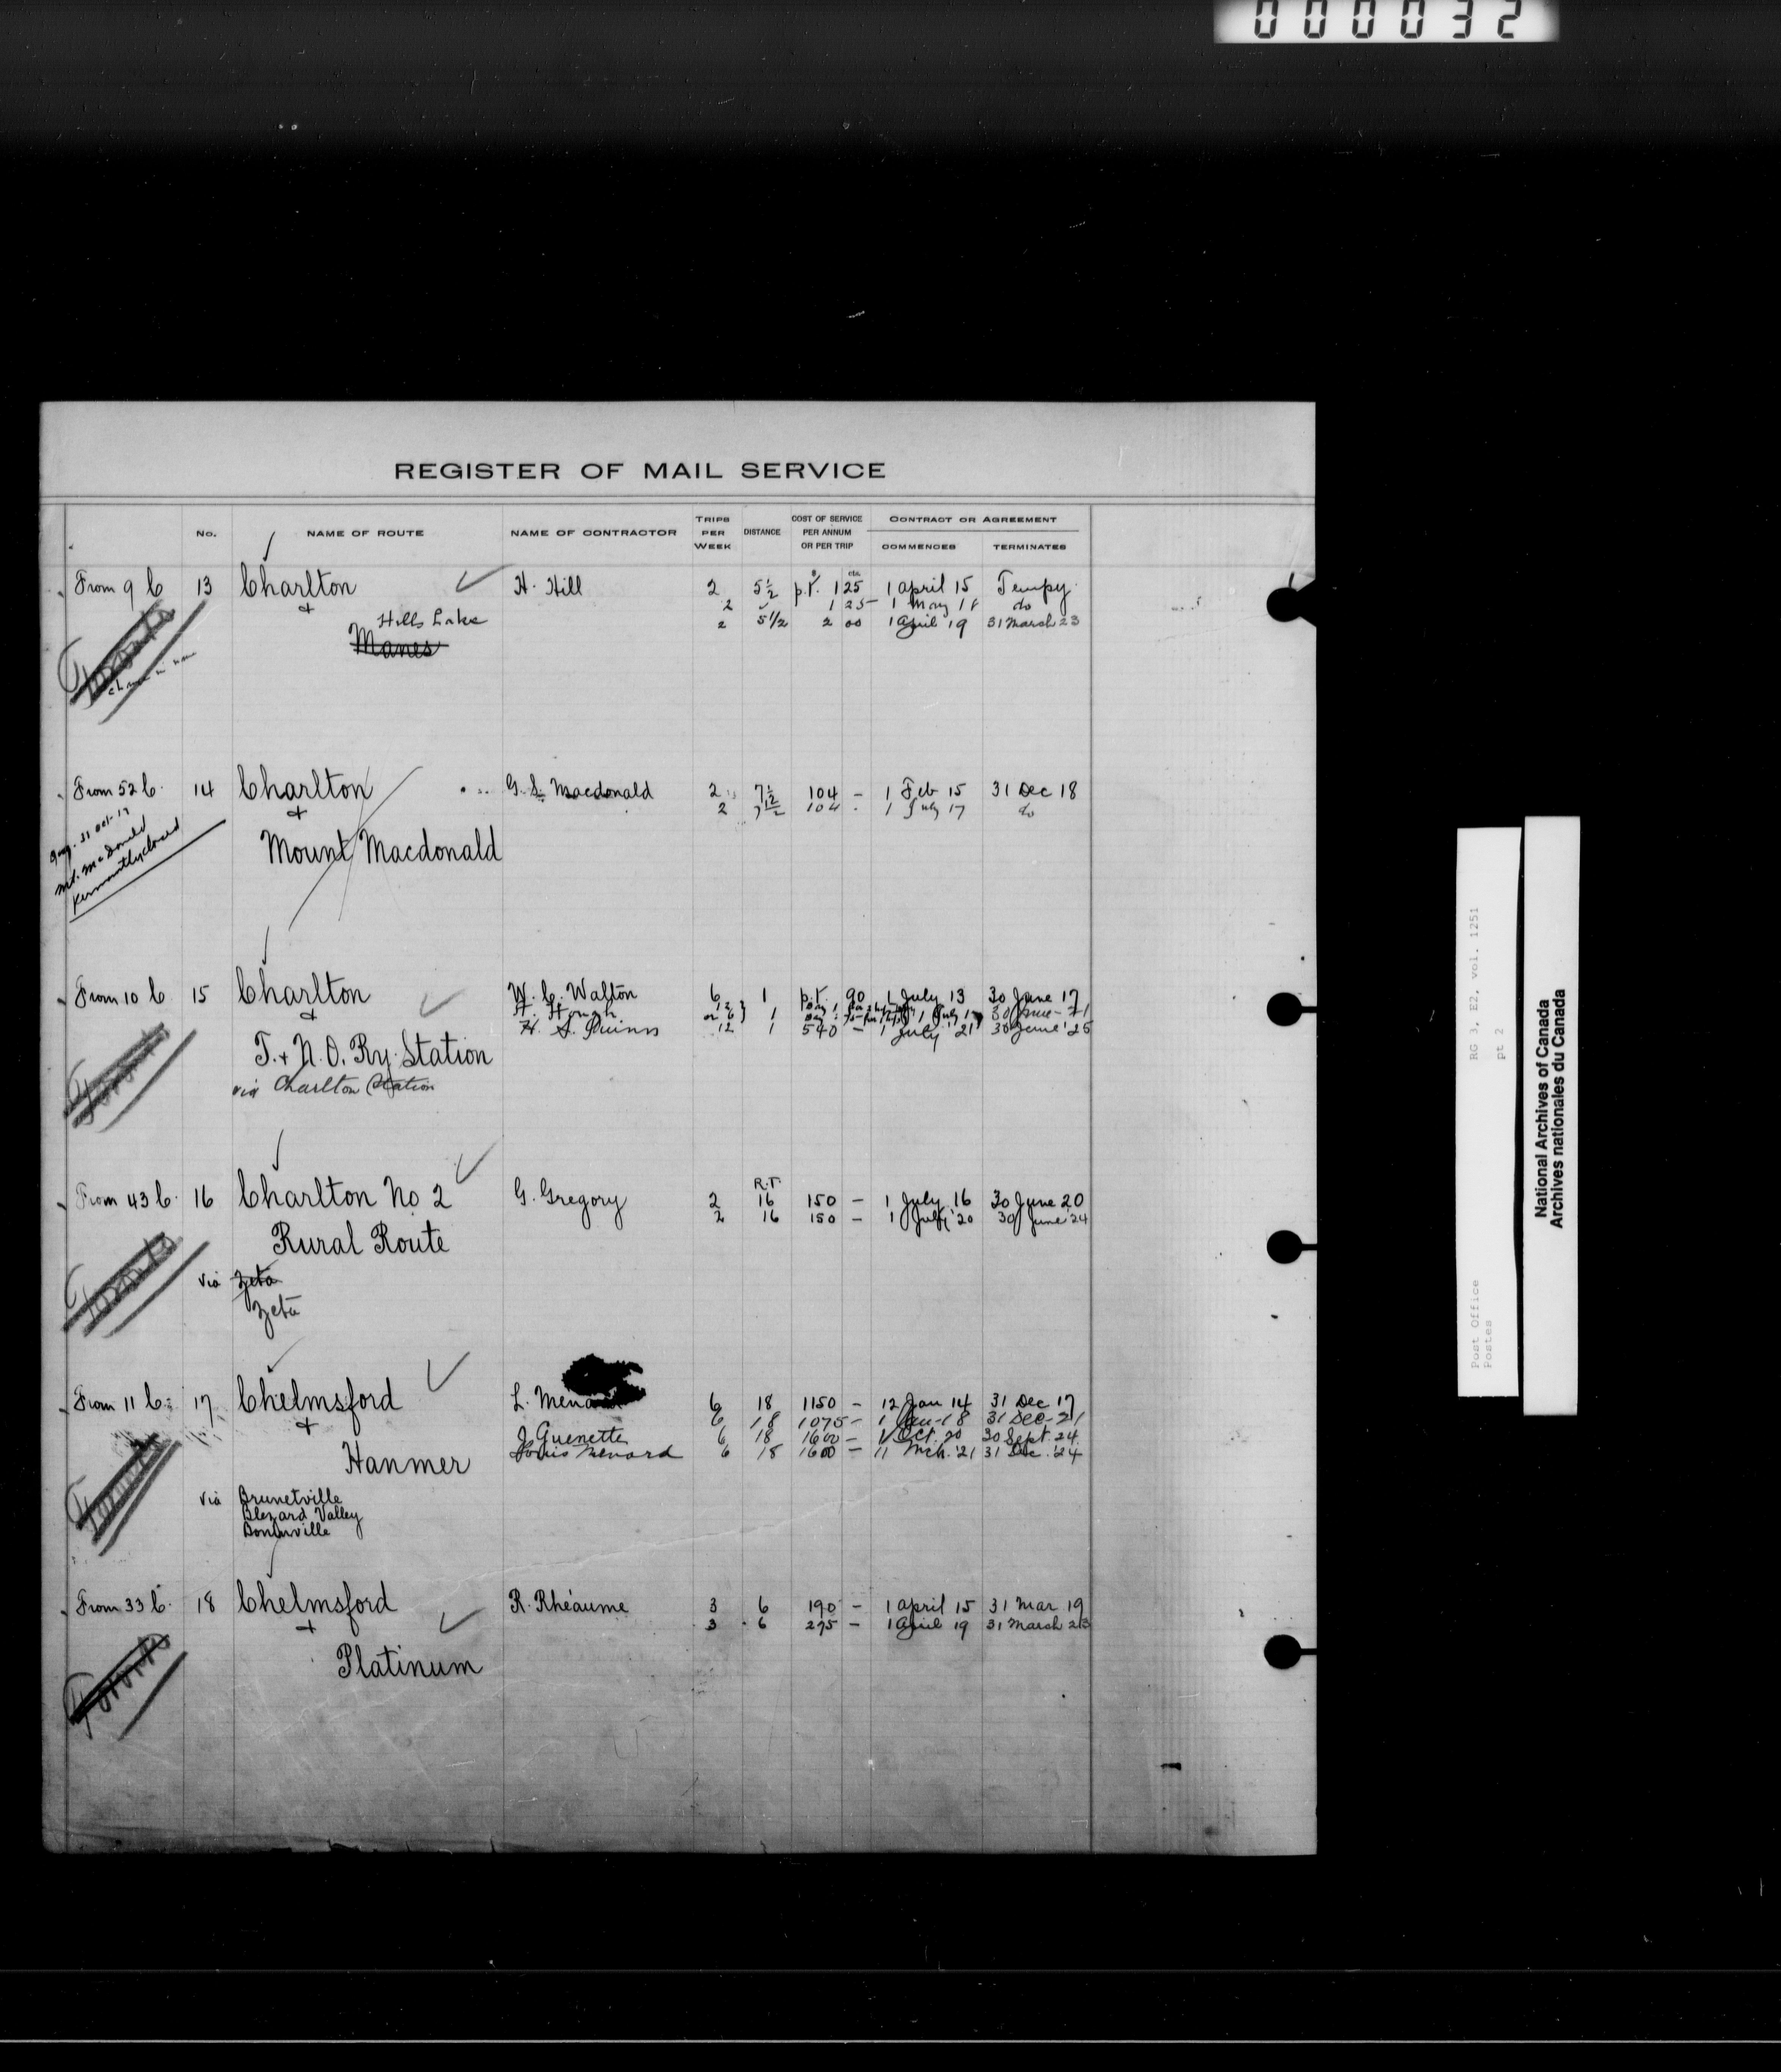 000032
REGISTER OF MAIL SERVICE
No. NAME OF ROUTE NAME OF CONTRACTOR TRIPS PER WEEK DISTANCE COST OF SERVICE PER ANNUM OR PER TRIP CONTRACT OR AGREEMENT COMMENCES TERMINATES
From 9 C 13 Charlton H. Hill 2 5½ p.t. 1 25 1 April 15 Tempy.
+ 2 1 25 1 May 18 do
Hills Lake 2 5 1/2 2 00 1 April 19 31 March 23
Manes
Toronto
From 52 C. 14 Charlton G. S. Macdonald 2 7½ 104 – 1 Feb 15 31 Dec 18
+ 2 7½ 104 – 1 July 17 do
Mount Macdonald
31 Oct 17
Mt. McDonald
permanently closed
From 10 C 15 Charlton W. C. Walton 6 1 p.t. 90 1 July 13 30 June 17
+ H. Hough 1 30 June – 21
H. S. Quinn 12 1 540 – 1 July '21 30 June '25
T. & N.O. Ry. Station
via Charlton Station
Toronto
From 43 C. 16 Charlton No 2 G. Gregory R.T. 2 16 150 – 1 July 16 30 June 20
2 16 150 – 1 July '20 30 June 24
Rural Route
via Zeta
Zeta
Toronto
From 11 C. 17 Chelmsford L. Menard 6 18 1150 – 12 Jan 14 31 Dec 17
+ 6 18 1075 – 1 Jan – 18 31 Dec – 21
J. Guenette 6 18 1600 – 1 Oct. 20 30 Sept. 24
Hanmer Louis Menard 6 18 1600 – 11 Mch. '21 31 Dec. '24
via Brunetville
Blezard Valley
Boninville
Toronto
From 33 C. 18 Chelmsford R. Rhéaume 3 6 190 – 1 April 15 31 Mar 19
+ 3 6 275 – 1 April 19 31 March 23
Platinum
Toronto
RG 3, E2, vol. 1251
pt 2
Post Office
Postes
National Archives of Canada
Archives nationales du Canada